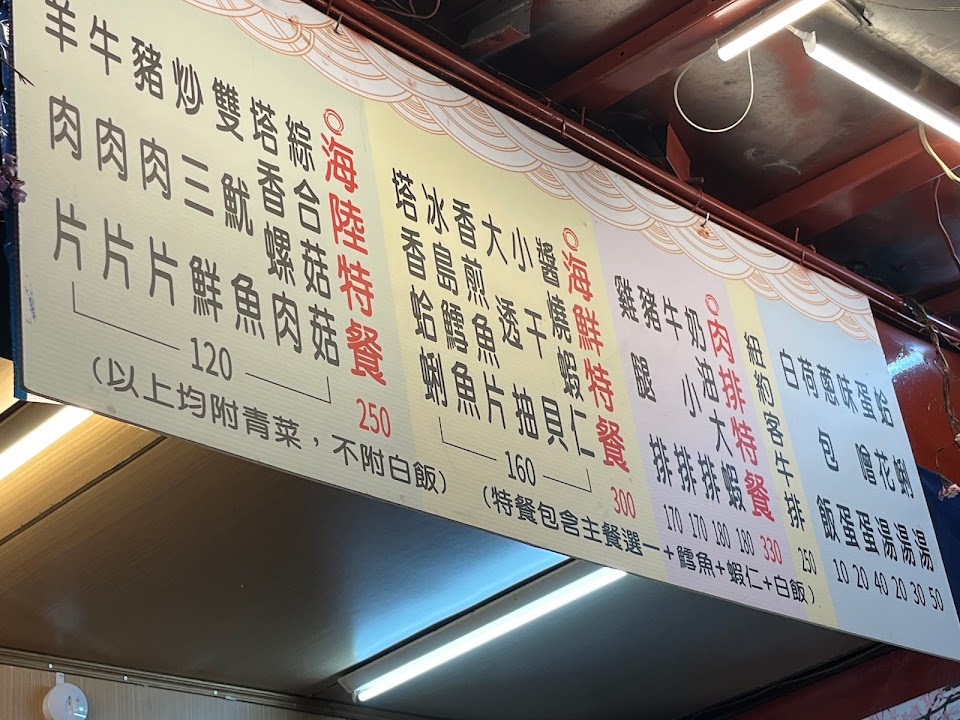 蛤蜊湯 50
蛋花湯 30
味噌湯 20
蔥蛋 40
荷包蛋 20
白飯 10
紐約客牛排 250
肉排特餐 330
奶油大蝦 180
牛小排 180
豬排 170
雞腿排 170
海鮮特餐 300
醬燒蝦仁
小干貝
大透抽
香煎魚片
冰島鱈魚
塔香蛤蜊
160
(特餐包含主餐選一+鱈魚+蝦仁+白飯)
海陸特餐 250
綜合菇菇
塔香螺肉
雙魷魚
炒三鮮
豬肉片
牛肉片
羊肉片
120
(以上均附青菜，不附白飯)